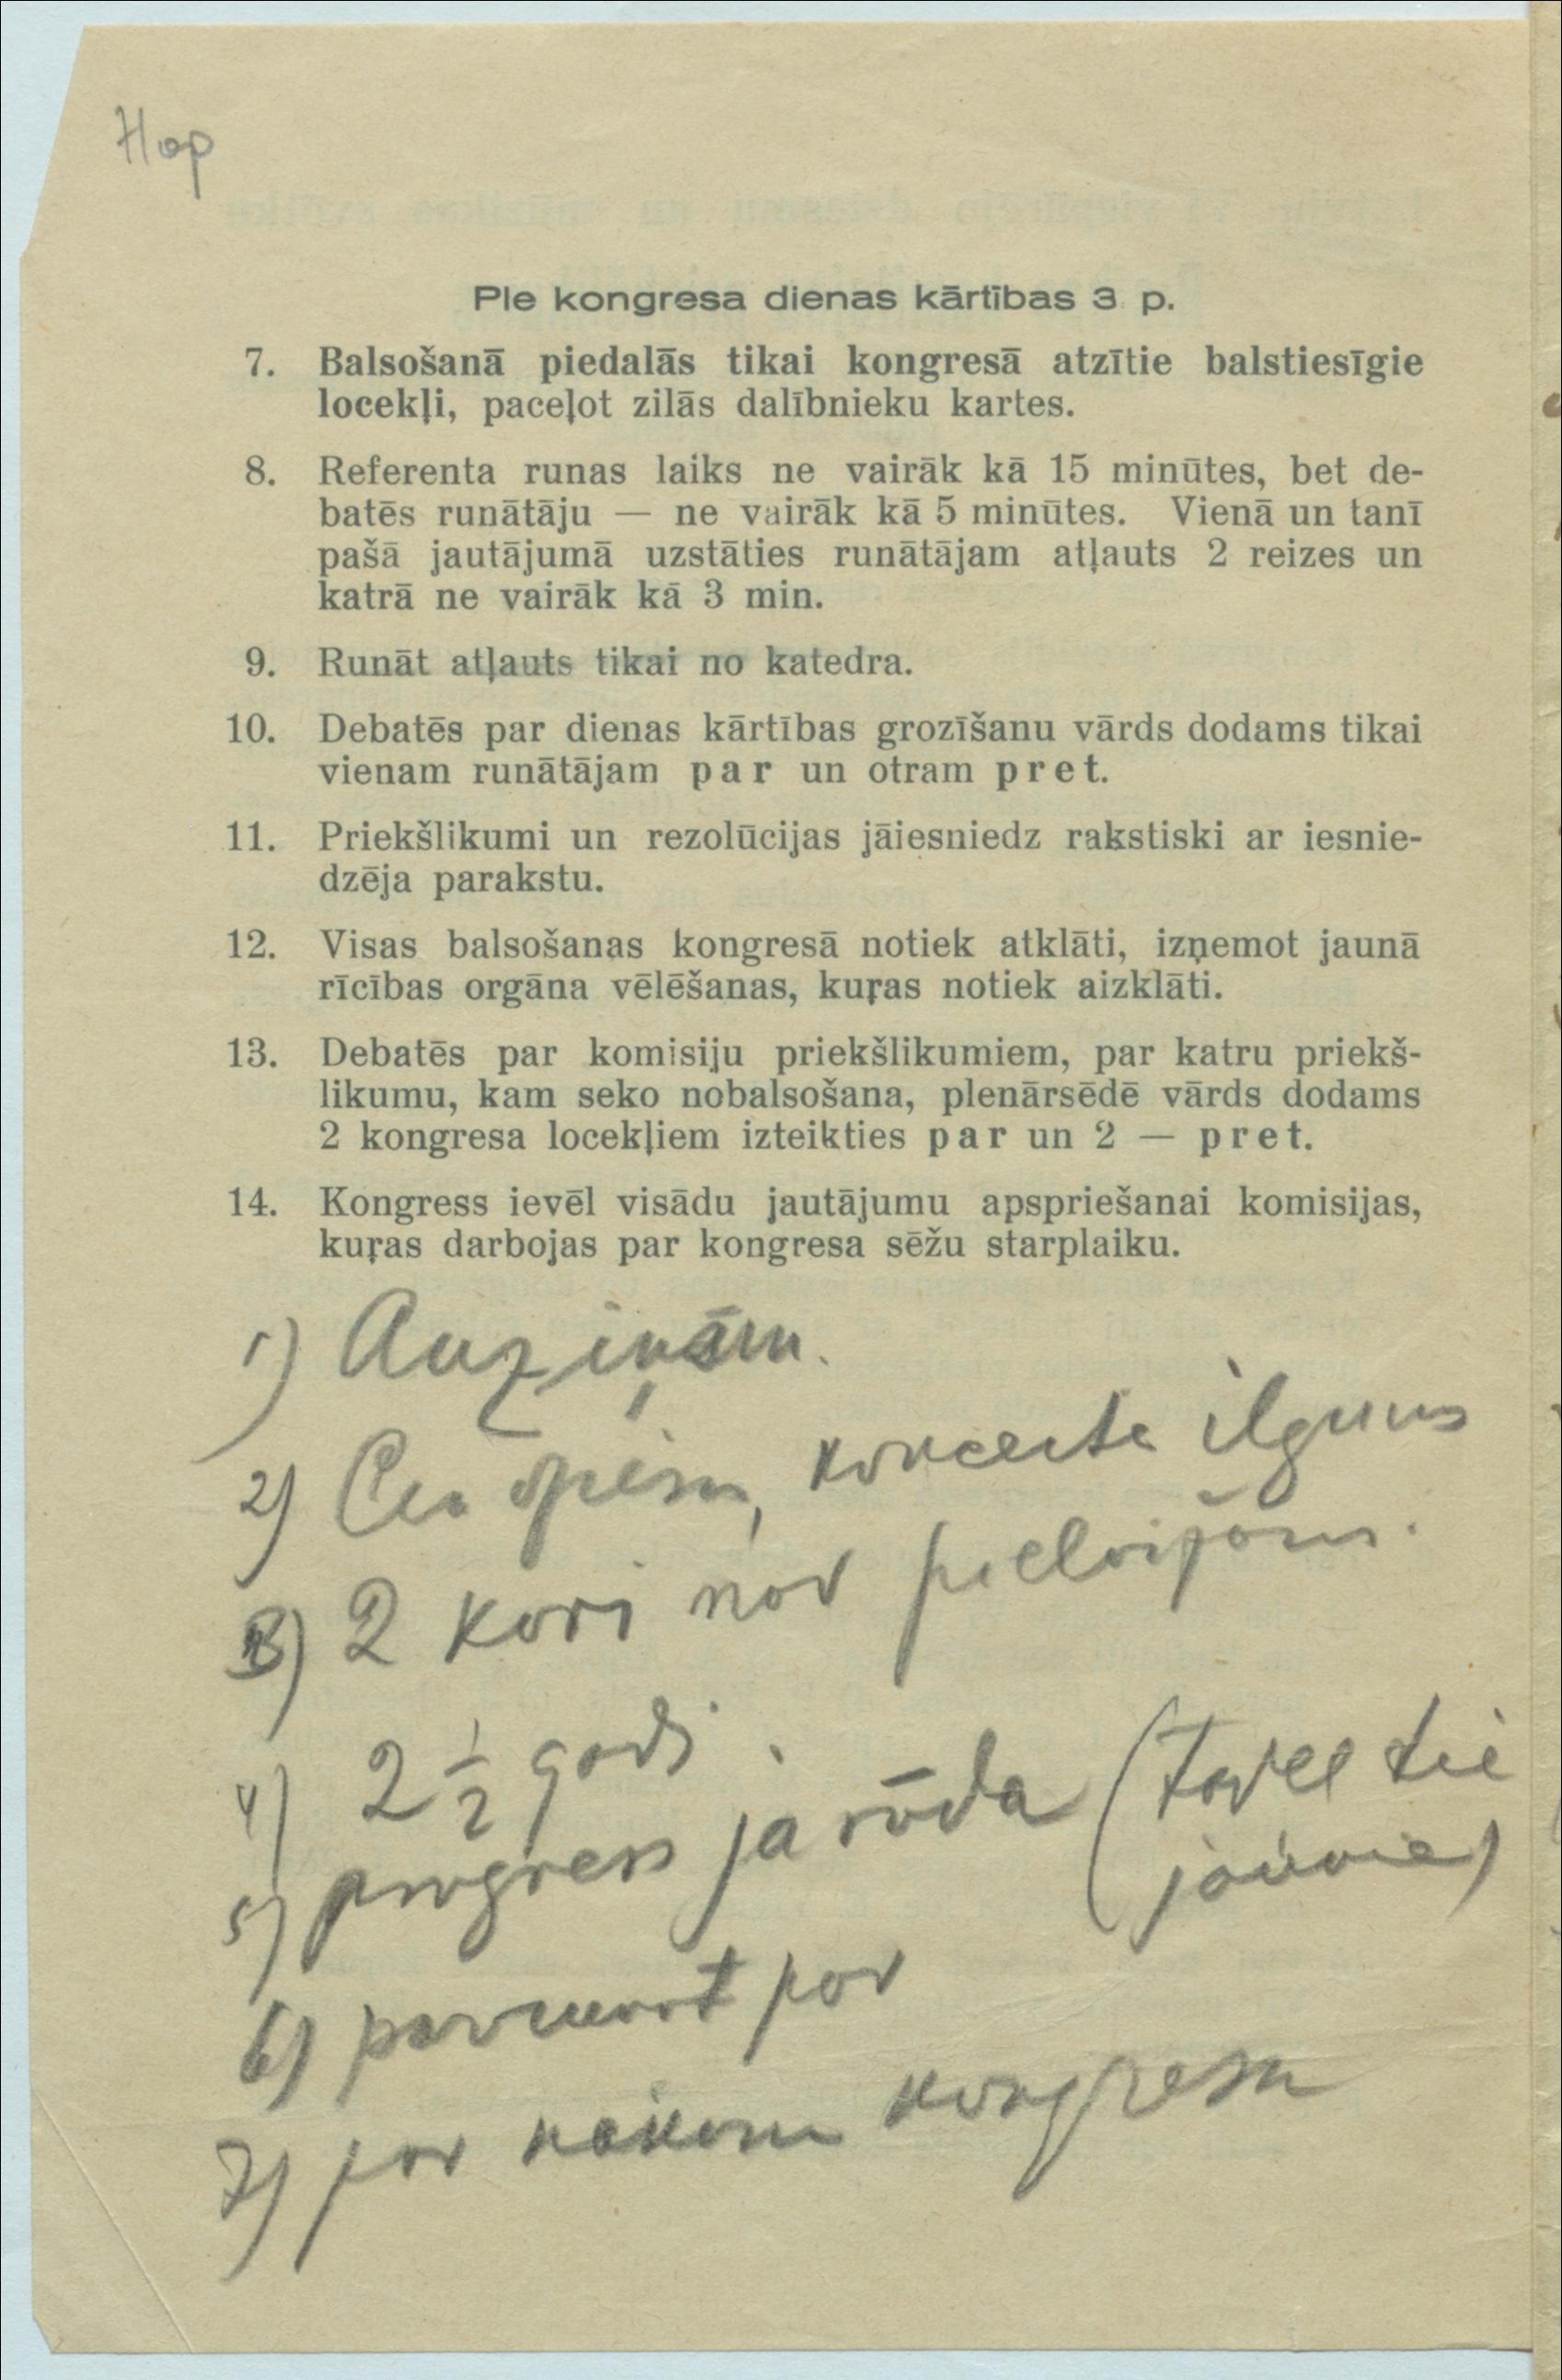 Hop
Pie kongresa dienas kārtības 3 p.
7. Balsošanā piedalās tikai kongresā atzītie balstiesīgie
locekļi, paceļot zilās dalībnieku kartes.
8. Referenta runas laiks ne vairāk kā 15 minūtes, bet de-
batēs runātāju — ne vairāk kā 5 minūtes. Vienā un tanī
pašā jautājumā uzstāties runātājam atļauts 2 reizes un
katrā ne vairāk kā 3 min.
9. Runāt atļauts tikai no katedra.
10. Debatēs par dienas kārtības grozīšanu vārds dodams tikai
vienam runātājam par un otram pret.
11. Priekšlikumi un rezolūcijas jāiesniedz rakstiski ar iesnie-
dzēja parakstu.
12. Visas balsošanas kongresā notiek atklāti, izņemot jaunā
rīcības orgāna vēlēšanas, kuŗas notiek aizklāti.
13. Debatēs par komisiju priekšlikumiem, par katru priekš-
likumu, kam seko nobalsošana, plenārsēdē vārds dodams
2 kongresa locekļiem izteikties par un 2 — pret.
14. Kongress ievēl visādu jautājumu apspriešanai komisijas,
kuŗas darbojas par kongresa sēžu starplaiku.
1) Auziņām.
2) koncerta ilgums
3) 2 kori nav
4) 2 1/2 gadi.
5) progress jārāda tie
jaunie)
6) par
7) par nākam kongresu